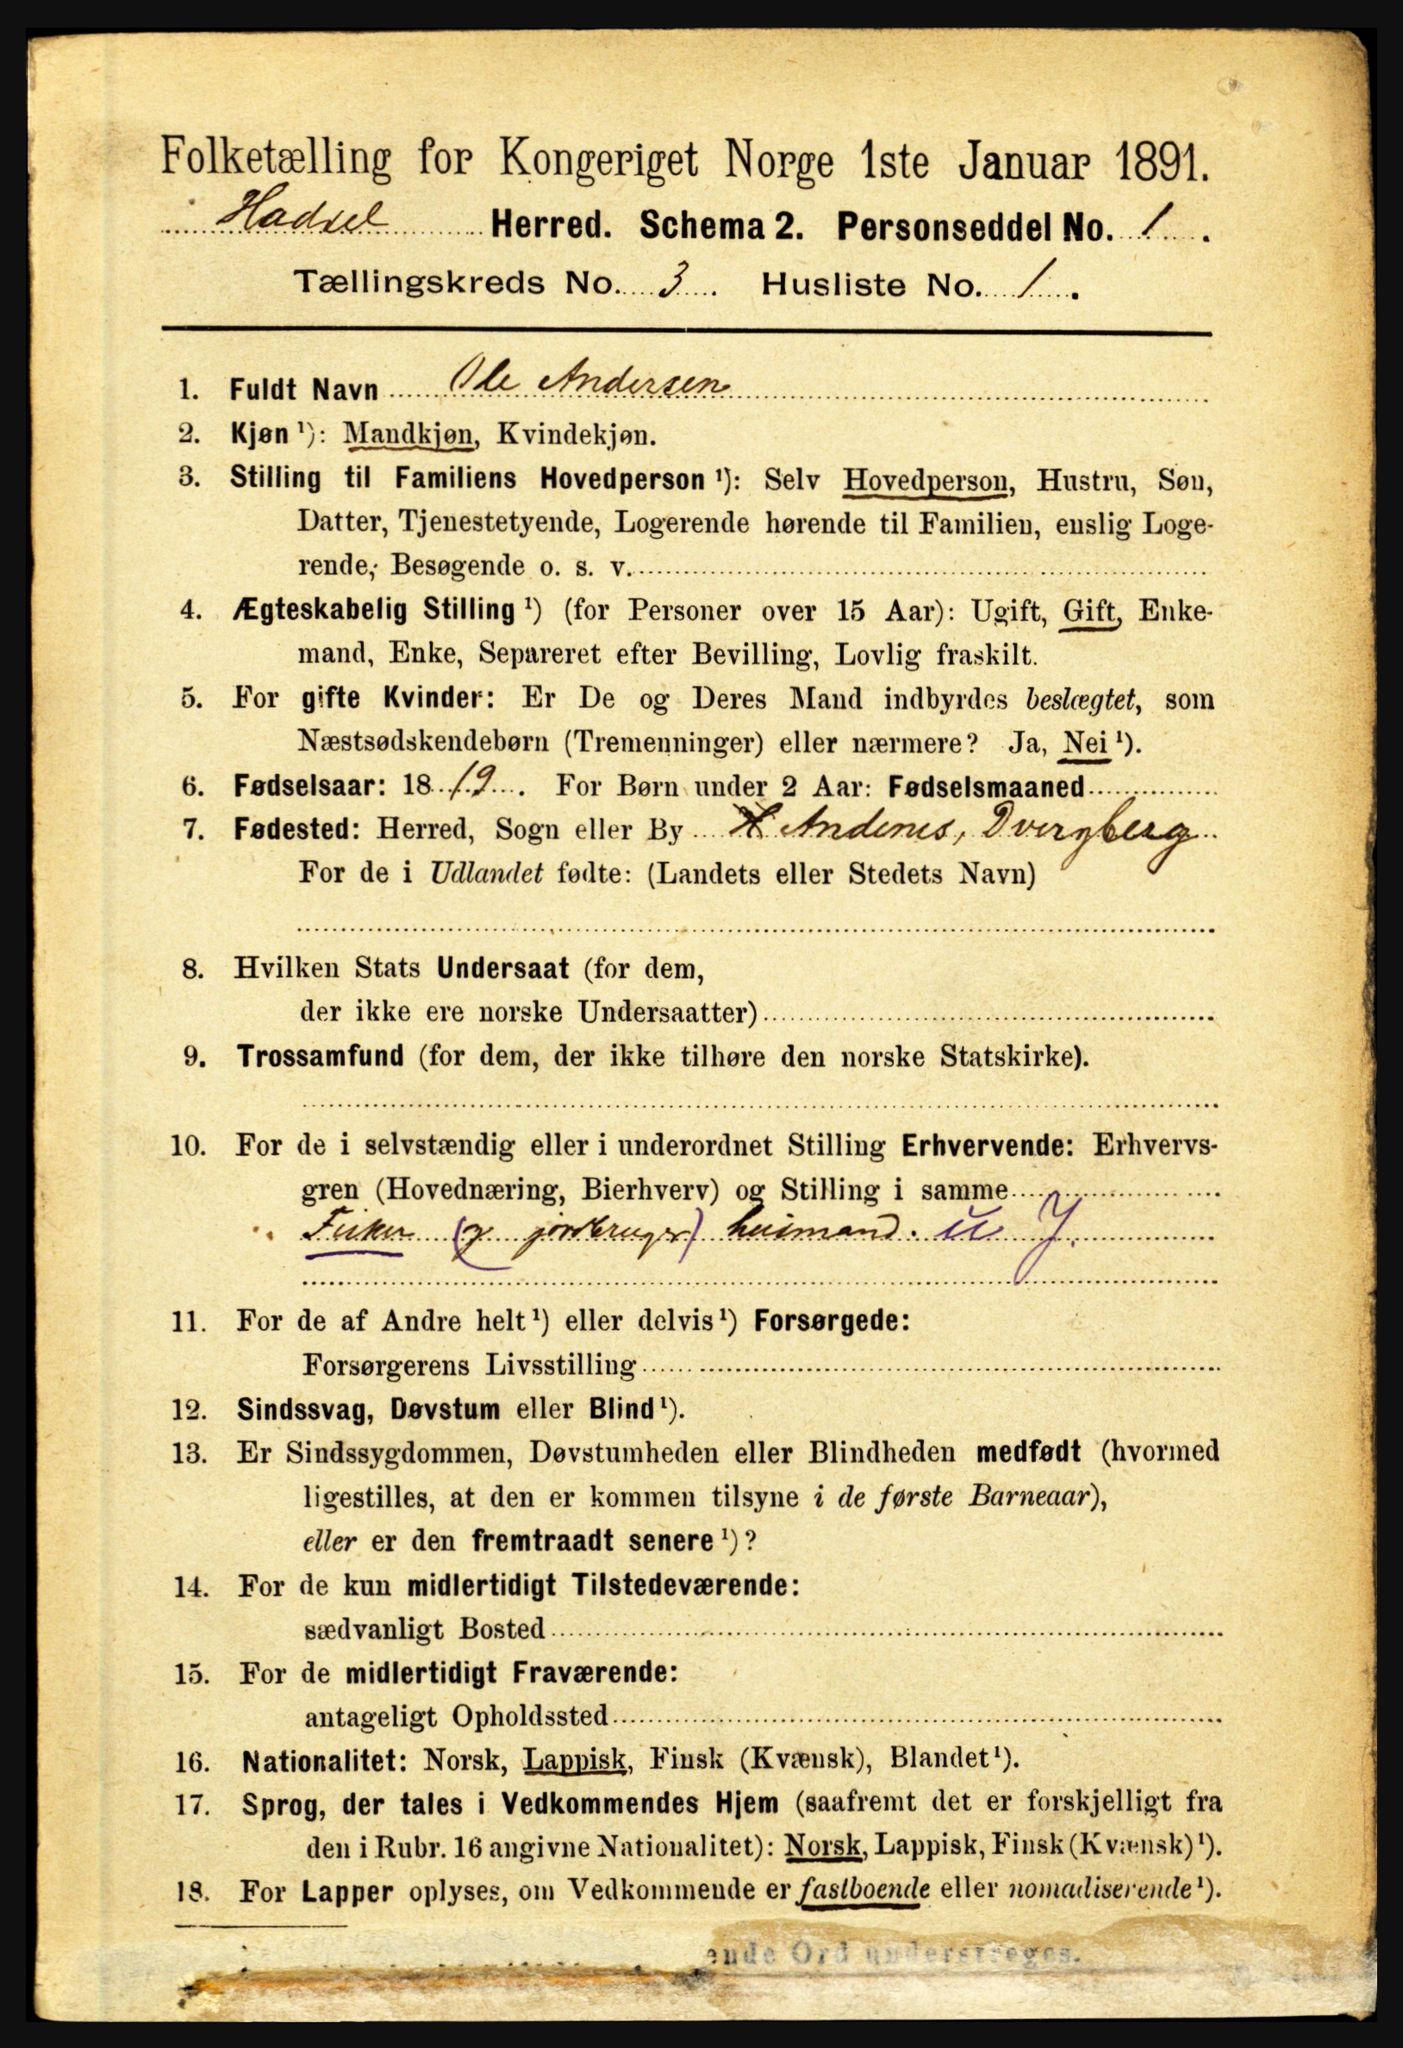 Folketælling for Kongeriget Norge 1ste Januar 1891.
Hadsel Herred. Schema 2. Personseddel No. 1.
Tællingskreds No. 3. Husliste No. 1.
1. Fuldt Navn Ole Andersen
2. Kjøn ¹): Mandkjøn, Kvindekjøn.
3. Stilling til Familiens Hovedperson ¹): Selv Hovedperson, Hustru, Søn,
Datter, Tjenestetyende, Logerende hørende til Familien, enslig Loge-
rende, Besøgende o. s. v.
4. Ægteskabelig Stilling ¹) (for Personer over 15 Aar): Ugift, Gift, Enke-
mand, Enke, Separeret efter Bevilling, Lovlig fraskilt.
5. For gifte Kvinder: Er De og Deres Mand indbyrdes beslægtet, som
Næstsødskendebørn (Tremenninger) eller nærmere? Ja, Nei ¹).
6. Fødselsaar: 1819. For Børn under 2 Aar: Fødselsmaaned
7. Fødested: Herred, Sogn eller By Andenes, Dvergberg
For de i Udlandet fødte: (Landets eller Stedets Navn)
8. Hvilken Stats Undersaat (for dem,
der ikke ere norske Undersaatter)
9. Trossamfund (for dem, der ikke tilhøre den norske Statskirke).
10. For de i selvstændig eller i underordnet Stilling Erhvervende: Erhvervs-
gren (Hovednæring, Bierhverv) og Stilling i samme
Fisker (og jordbruger) husmand. u J.
11. For de af Andre helt ¹) eller delvis ¹) Forsørgede:
Forsørgerens Livsstilling
12. Sindssvag, Døvstum eller Blind ¹).
13. Er Sindssygdommen, Døvstumheden eller Blindheden medfødt (hvormed
ligestilles, at den er kommen tilsyne i de første Barneaar),
eller er den fremtraadt senere ¹)?
14. For de kun midlertidigt Tilstedeværende:
sædvanligt Bosted
15. For de midlertidigt Fraværende:
antageligt Opholdssted
16. Nationalitet: Norsk, Lappisk, Finsk (Kvænsk), Blandet ¹).
17. Sprog, der tales i Vedkommendes Hjem (saafremt det er forskjelligt fra
den i Rubr. 16 angivne Nationalitet): Norsk, Lappisk, Finsk (Kvænsk) ¹).
18. For Lapper oplyses, om Vedkommende er fastboende eller nomadiserende ¹).
ende Ord understreges.